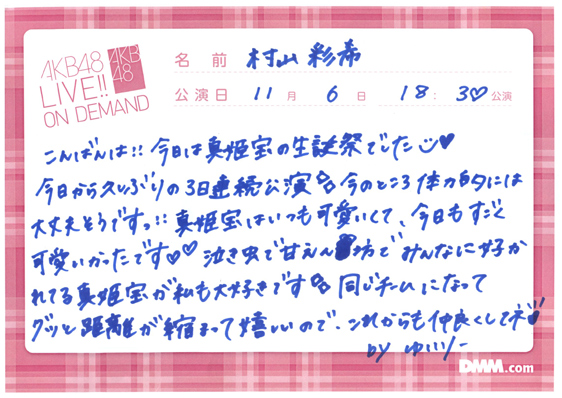 AKB48
LIVE!!
ON DEMAND
AKB
48
名前 村山彩希
公演日 11月 6日 18:30公演
こんばんは!! 今日は真姫宝の生誕祭でした
今日から久しぶりの3日連続公演 今のところ体力的には
大丈夫そうですっ!! 真姫宝はいつも可愛いくて、今日もすごく
可愛いかったです♡♡ 泣き虫で甘えん坊でみんなに好か
れてる真姫宝が私も大好きです 同じチームになって
グッと距離が縮まって嬉しいので、これからも仲良くしてネ
by ゆいりー
DMM.com